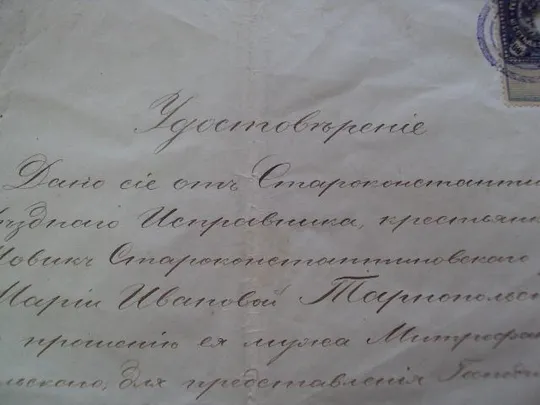 Удостовѣреніе
Дано сіе отъ Староконстанти
ѣзднаго Исправника, крестьян
Новикъ Староконстантиновскаго
Маріи Ивановой Тарнопольс
прошенію ея мужа Митрофа
льскаго, для представленія Господи